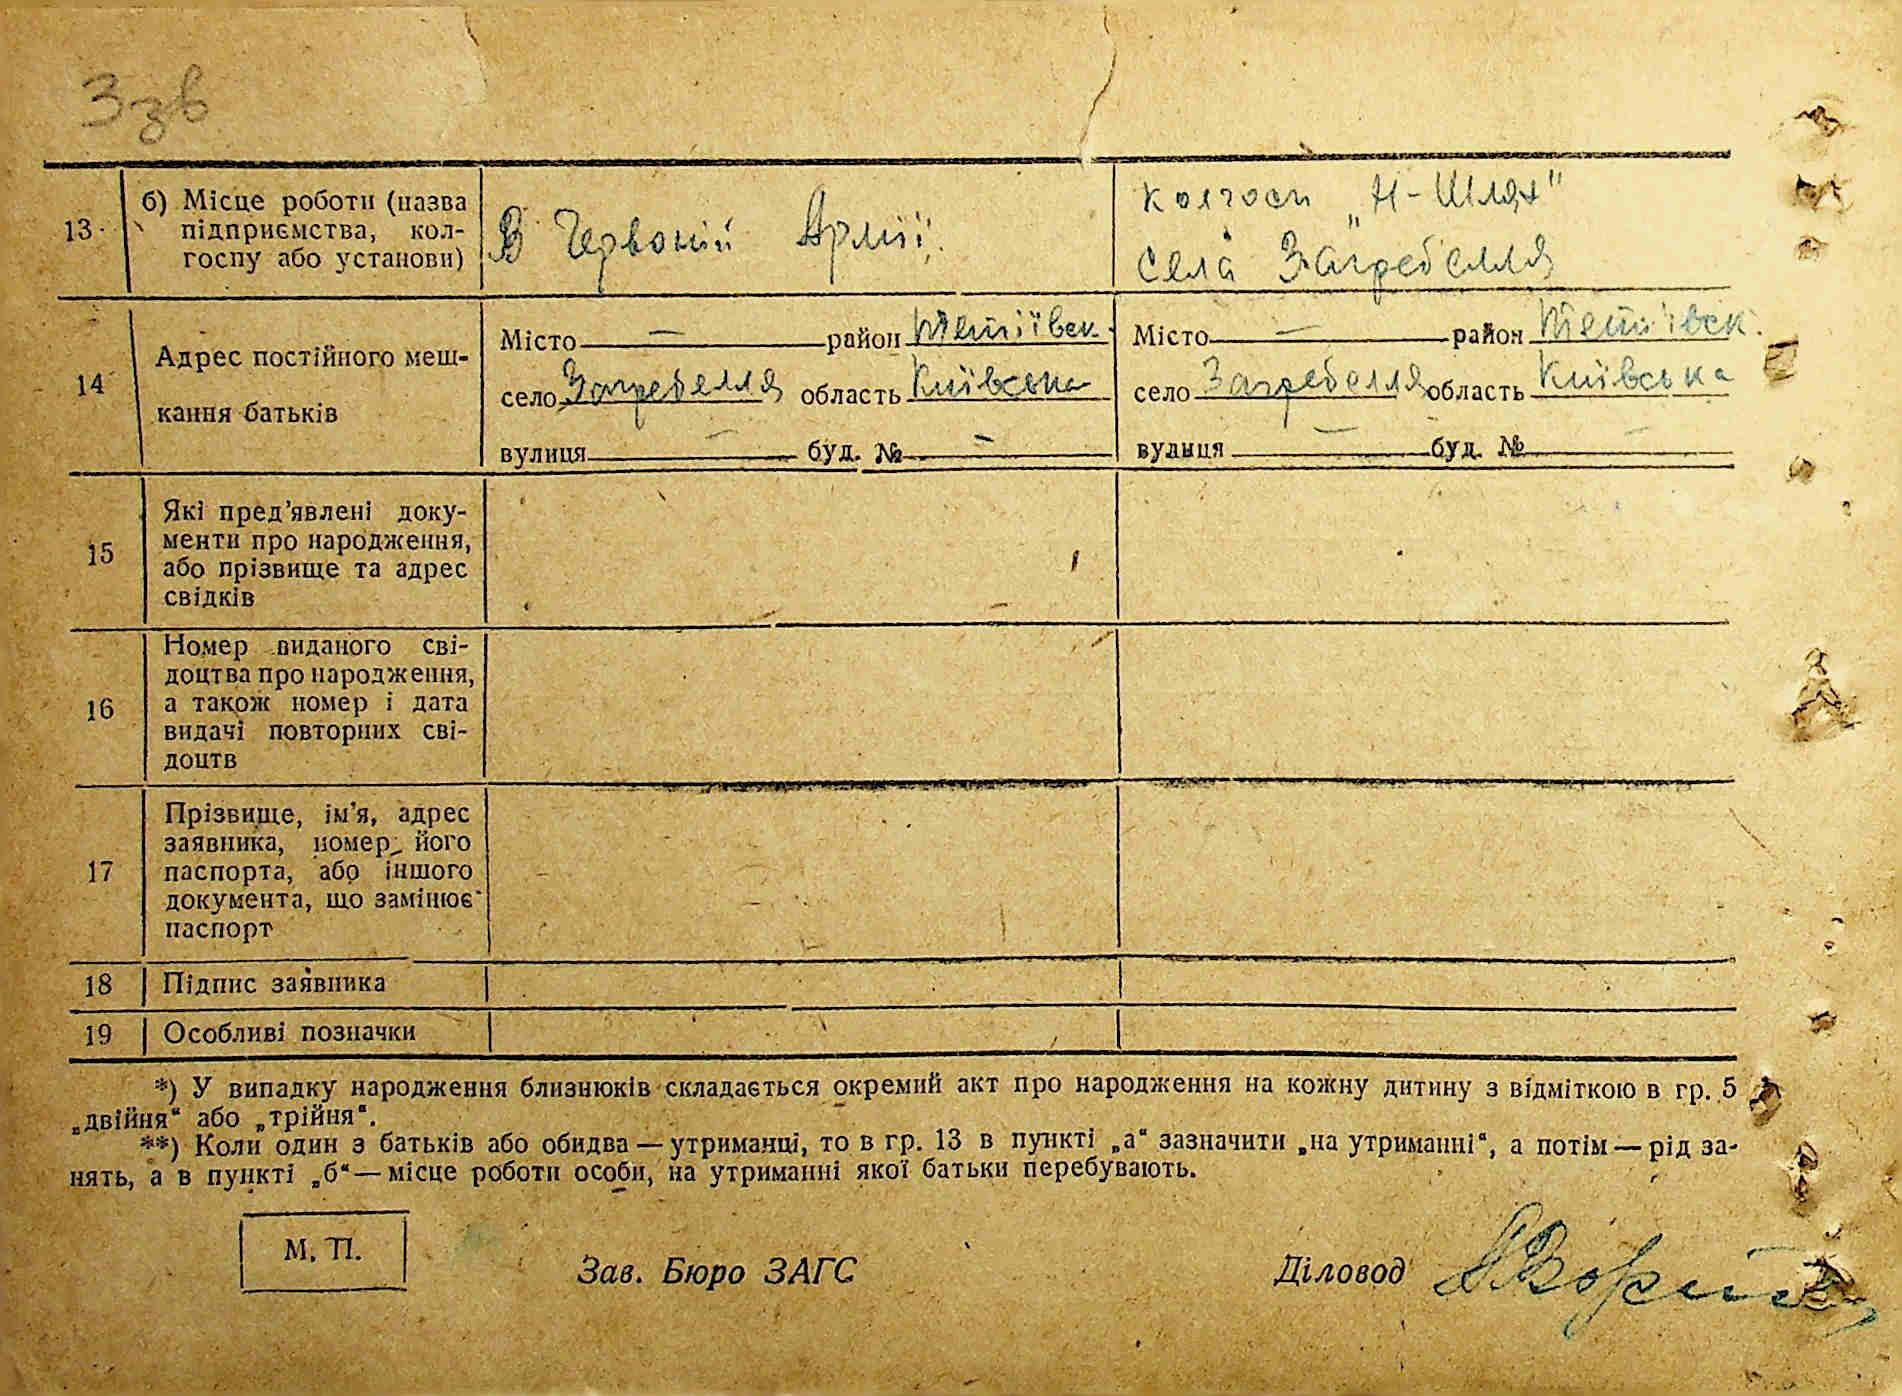 3 зв
13
б) Місце роботи (назва
підприємства, кол-
госпу або установи)
В Червоній Армії.
колгосп „Н-Шлях"
села Загребелля
14
Адрес постійного меш-
кання батьків
Місто — район Тетіївськ.
село Загребелля область Київська
вулиця — буд. № —
Місто — район Тетіївськ.
село Загребелля область Київська
вулиця — буд. № —
15
Які пред'явлені доку-
менти про народження,
або прізвище та адрес
свідків
16
Номер виданого сві-
доцтва про народження,
а також номер і дата
видачі повторних сві-
доцтв
17
Прізвище, ім'я, адрес
заявника, номер його
паспорта, або іншого
документа, що замінює
паспорт
18 Підпис заявника
19 Особливі позначки
*) У випадку народження близнюків складається окремий акт про народження на кожну дитину з відміткою в гр. 5
„двійня" або „трійня".
**) Коли один з батьків або обидва — утриманці, то в гр. 13 в пункті „а" зазначити „на утриманні", а потім — рід за-
нять, а в пункті „б" — місце роботи особи, на утриманні якої батьки перебувають.
М. П.
Зав. Бюро ЗАГС
Діловод